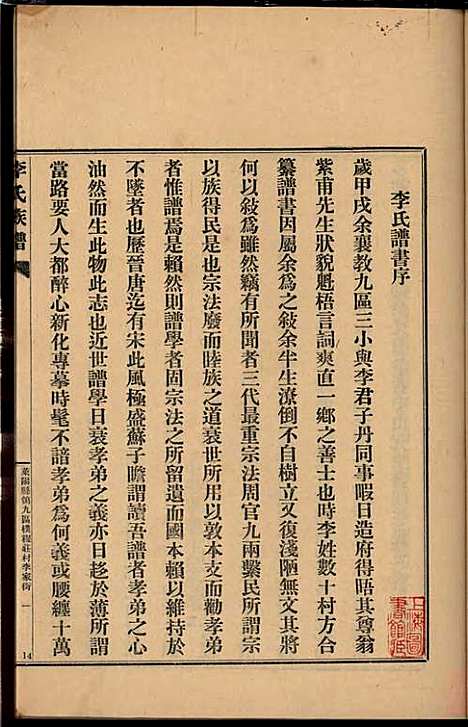 李氏譜書序
歲甲戌余襄教九區三小與李君子丹同事暇日造府得晤其尊翁
紫甫先生狀貌魁梧言詞爽直一鄉之善士也時李姓數十村方合
纂譜書因屬余為之敍余半生潦倒不自樹立又復淺陋無文其將
何以敍為雖然竊有所聞者三代最重宗法周官九兩繫民所謂宗
以族得民是也宗法廢而睦族之道衰世所以聯疏遠而勸孝弟
者惟譜焉是賴然則譜學者固宗法之所留遺而國本賴以維持於
不墜者也歷晉唐迄有宋此風極盛蘇子瞻謂讀吾譜者孝弟之心
油然而生此物此志也近世譜學日衰孝弟之義亦日趍於薄所謂
當路要人大都醉心新化專摹時髦不諳孝弟為何義或腰纏十萬
李氏族譜
萊陽縣第九區樸程莊村李家街
一
14
上海圖書館藏